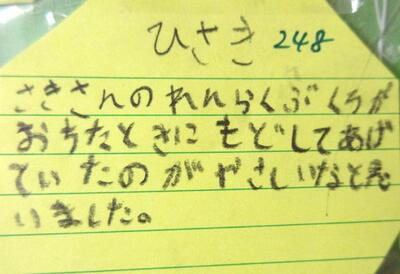 ひさき 248
さきさんのれんらくぶくろが
おちたときにもどしてあげ
ていたのがやさしいなと思
いました。